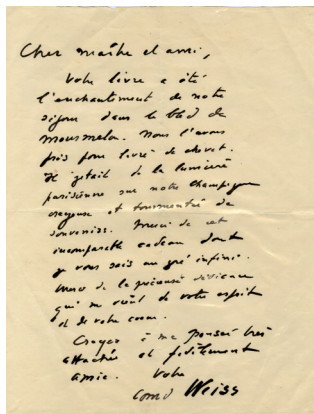 Cher maître et ami,
Votre livre a été
l'enchantement de notre
séjour dans le bled de
Mourmelon. Nous l'avons
pris pour livre de chevet.
Il jetait de la lumière
parisienne sur notre Champagne
crayeuse et tourmentée de
souvenirs. Merci de cet
incomparable cadeau dont
je vous sais un gré infini.
Merci de la précieuse dédicace
qui me vient de votre esprit
et de votre coeur.
Croyez à ma pensée très
attachée et fidèlement
amie. Votre
Weiss